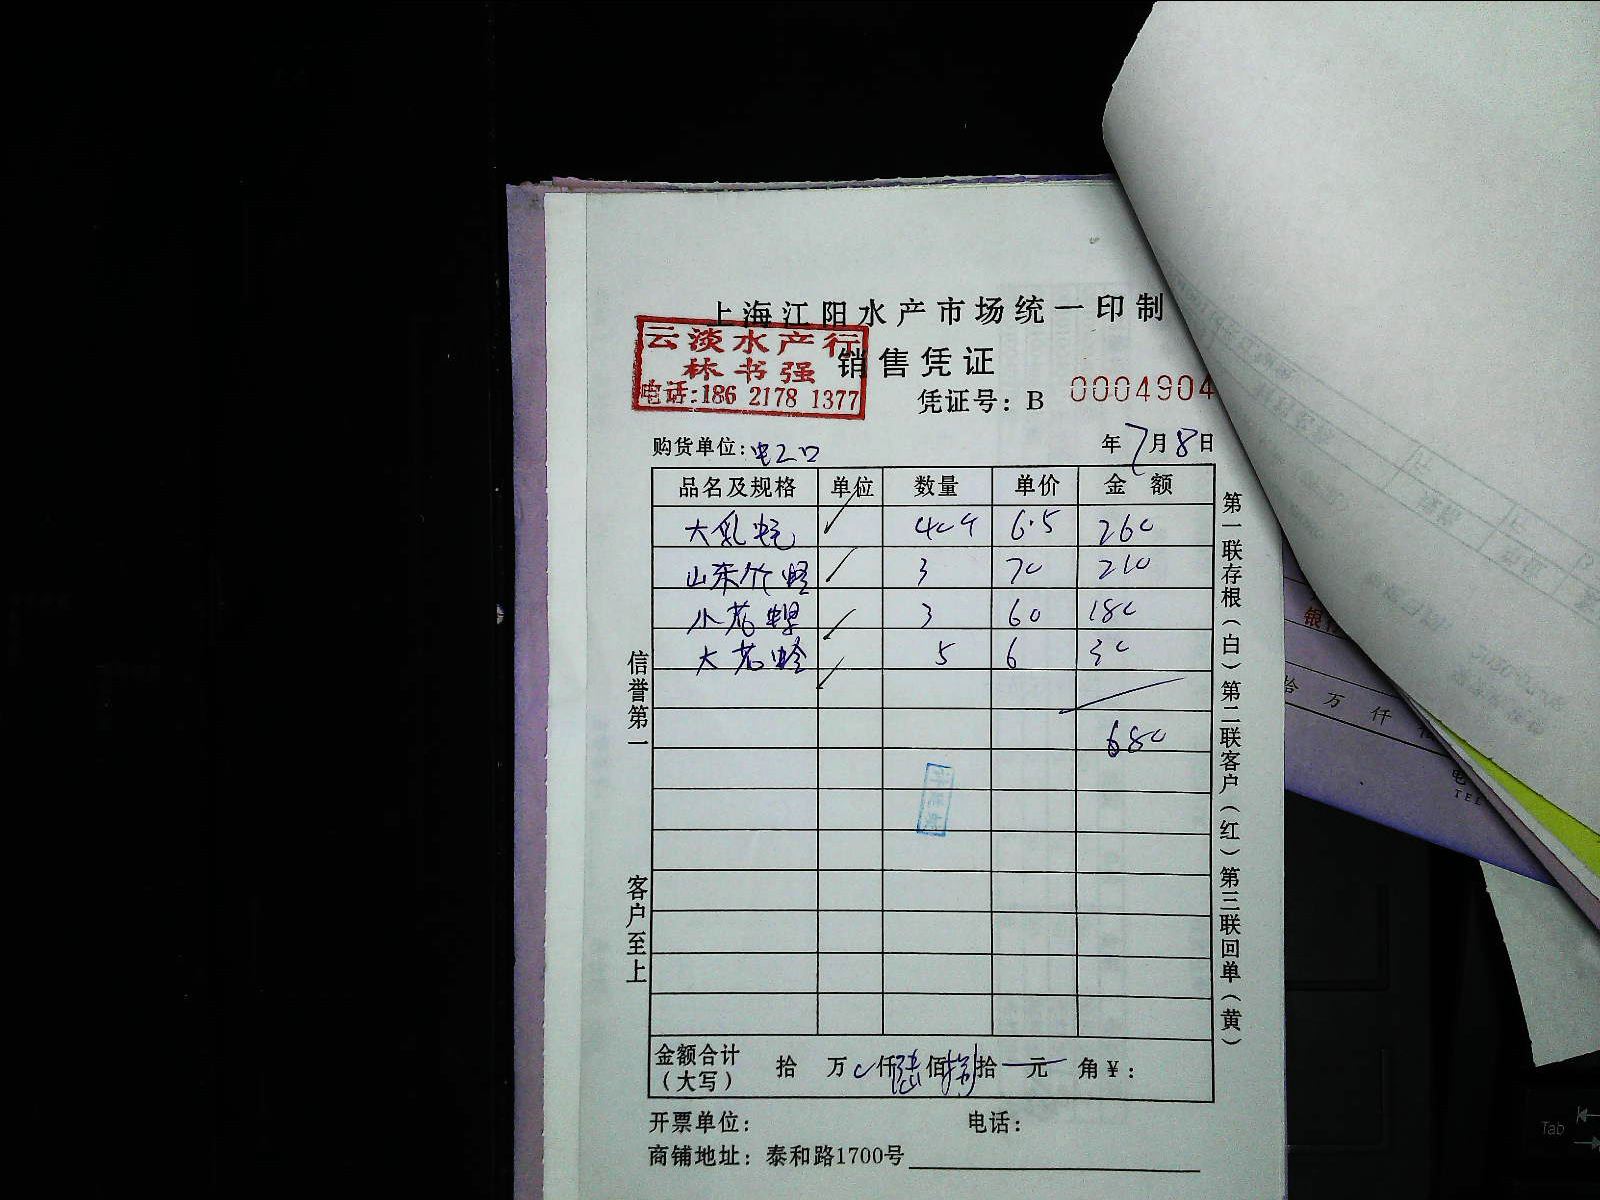 上海江阳水产市场统一印制
云淡水产行
林书强
电话:186 2178 1377
销售凭证
凭证号: B 0004904
购货单位: 电工口 年7月8日
品名及规格 单位 数量 单价 金额
大乳 40个 6.5 260
山东竹蛏 3 70 210
小花螺 3 60 180
大花蛤 5 6 30
680
信誉第一
客户至上
第一联存根(白)第二联客户(红)第三联回单(黄)
金额合计(大写) 拾 万 仟陆佰捌拾 元 角¥:
开票单位: 电话:
商铺地址: 泰和路1700号
万 仟
TEL
Tab